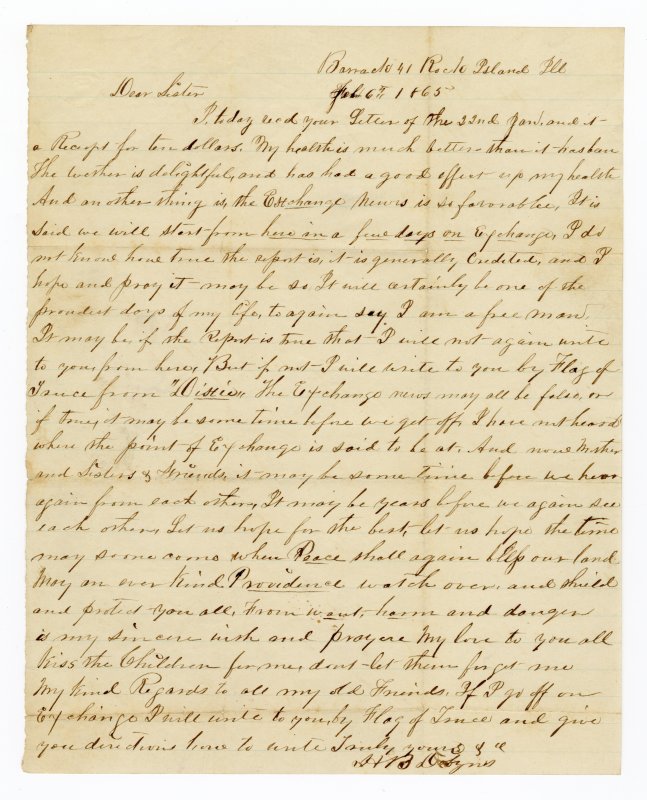 Barrack 41 Rock Island Ill
Dear Sister Feb 6th 1865
I today recd your Letter of the 22nd Jan, and it
a Receipt for ten dollars. My health is much better than it has been
The wether is delightful, and has had a good effect up my health
And an other thing is, the Exchange News is so favorable, It is
said we will start from here in a few days on Exchange, I do
not know how true the report is, it is generally Credited, and I
hope and pray it may be so It will certainly be one of the
proudest days of my life, to again say I am a free man.
It may be, if the report is true that I will not again write
to you, from here, But if not I will write to you by Flag of
Truce from "Dixie," The Exchange news may all be false, or
if true, it may be some time before we get off, I have not heard
where the point of Exchange is said to be at. And now Mother
and Sisters & Friends, it may be some time before we hear
again from each other, It may be years before we again see
each other, Let us hope for the best, let us hope the time
may soone come when Peace shall again bless our land
May an ever kind Providence watch over, and shield
and protect you all, From want, harm and danger
is my sincere wish and prayer My love to you all
Kiss the Children for me, dont let them forget me
My kind Regards to all my old Friends. If I go off on
Exchange I will write to you, by Flag of Truce and give
you directions how to write Truly yours &c
B